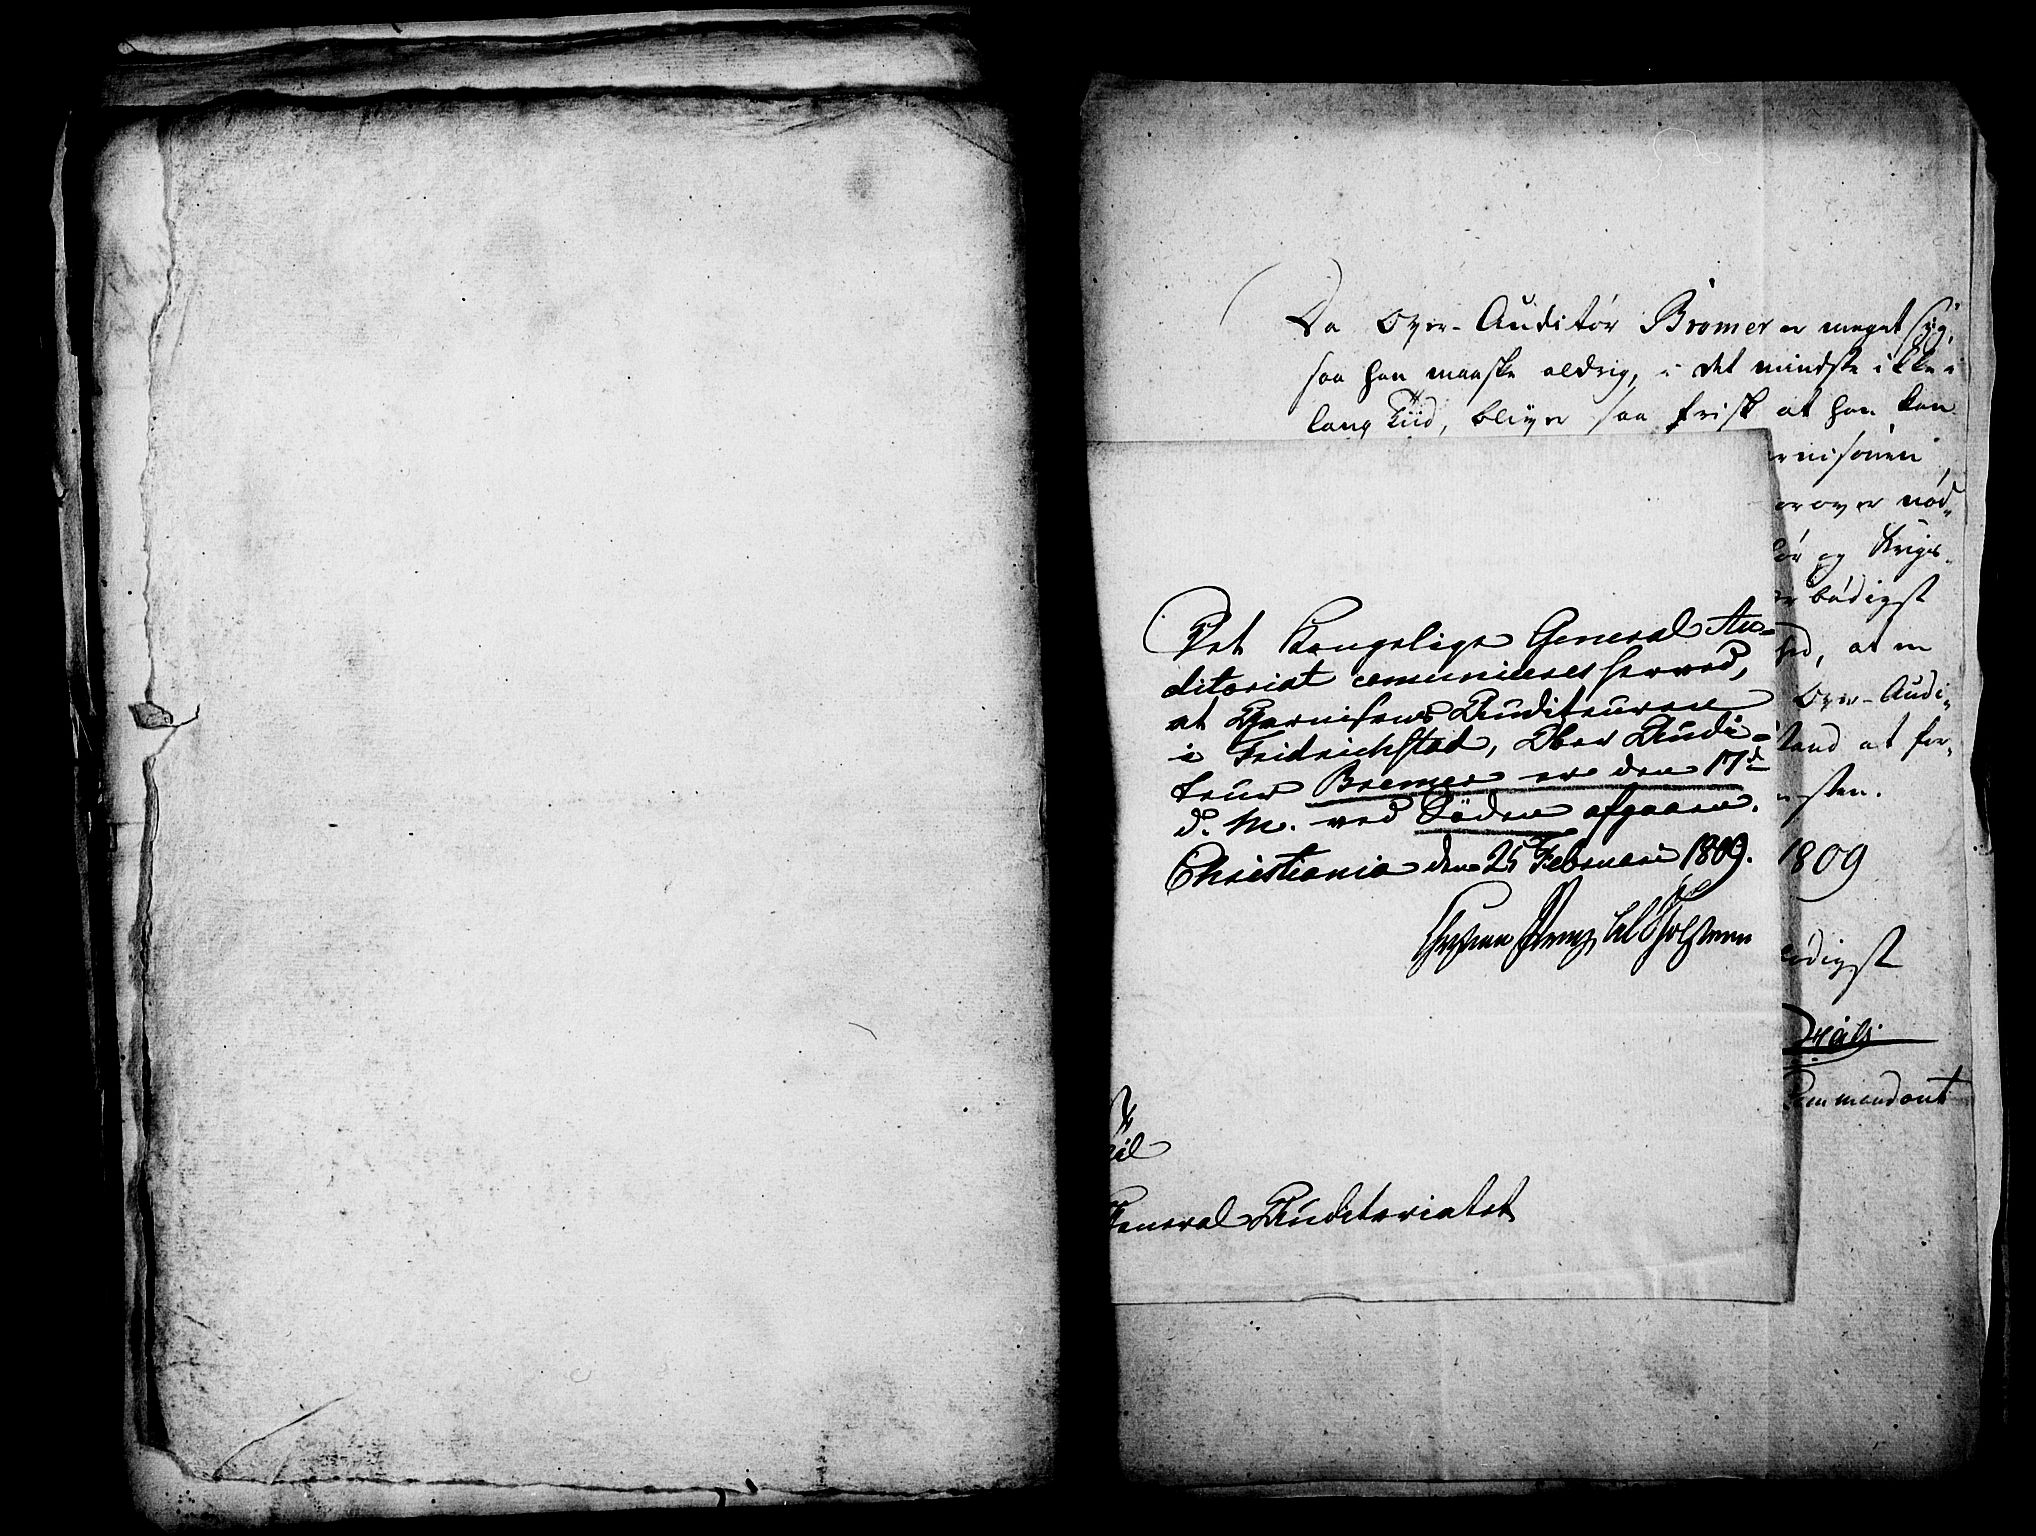 Da Over-Auditør Brømer er meget syg,
saa han maaske aldrig, i det mindste ikke i
lang Tiid, bliver saa frisk at han kan
rnisonen
orover nød-
ør og Krigs-
rbødigst
hed, at en
Over-Audi-
stand at for-
esten.
1809
ødigst
Commendant
Det Kongelige General Au-
ditoriat communiceres herved,
at Garnisons Auditeuren
i Fridrichstad, Ober Audi-
teur Bremer er den 17d
d. M. ved Døden afgaaen.
Christiania den 25 Februari 1809.
Til
General Auditoriatet